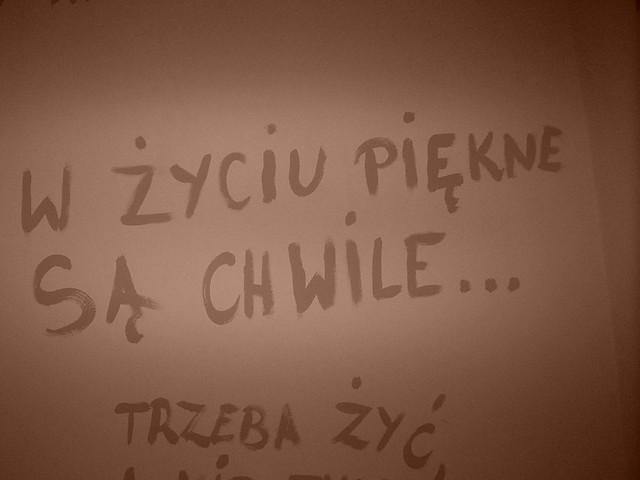 W ŻYCIU PIĘKNE
SĄ CHWILE...
TRZEBA ŻYĆ